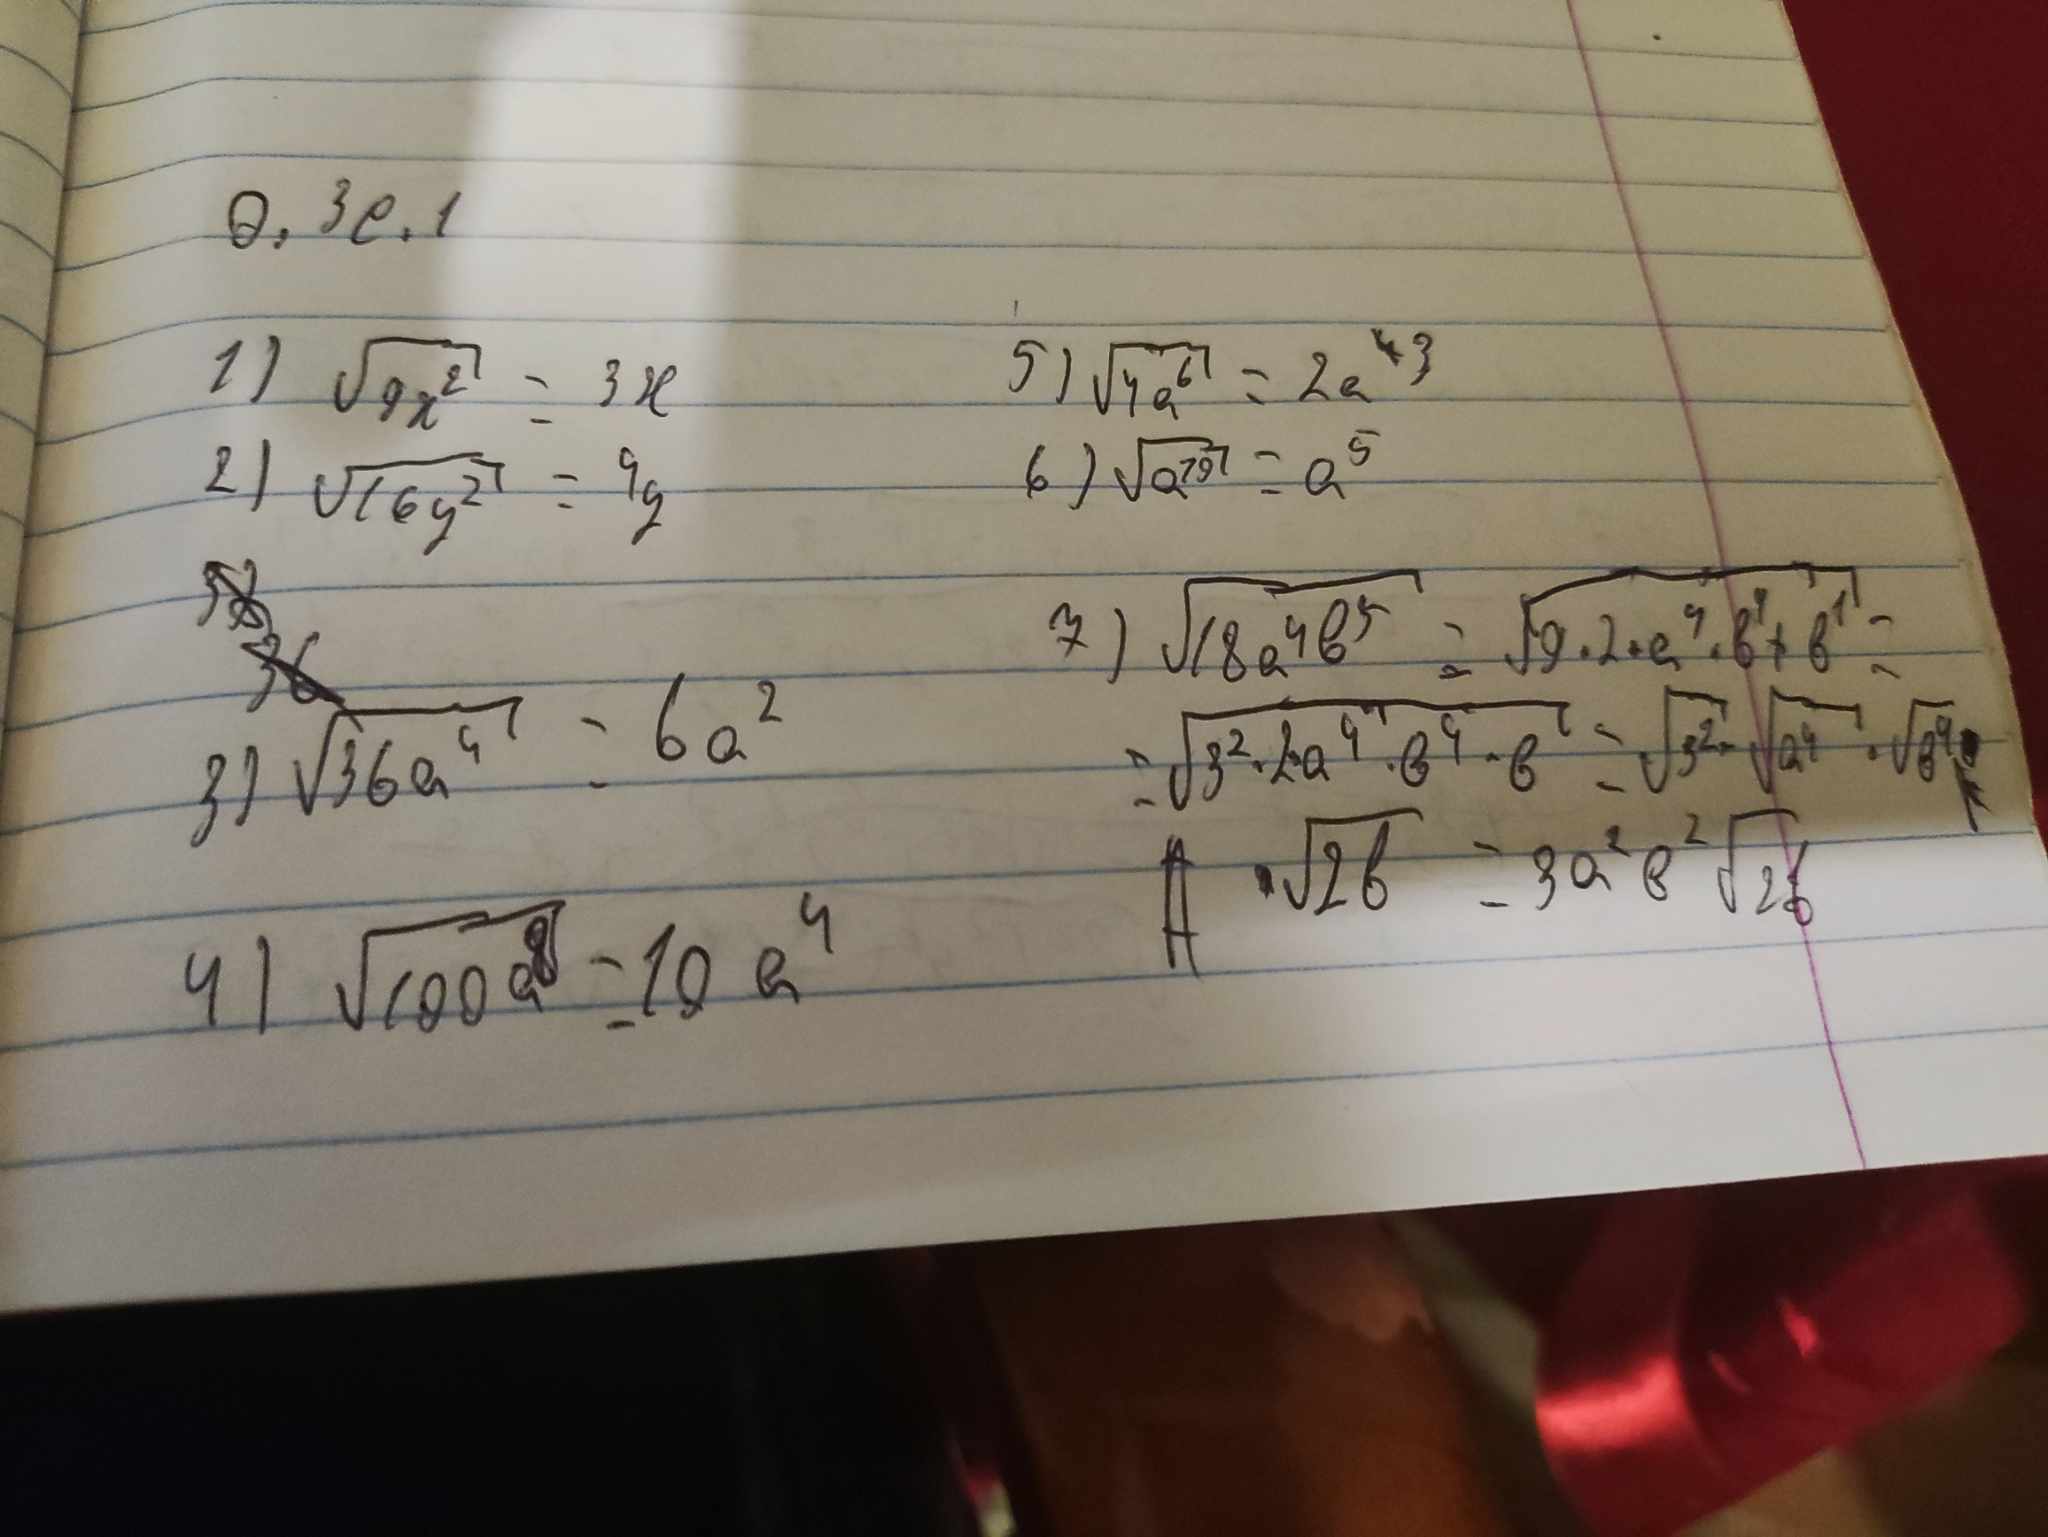 0. 3e.1
1) √9x² = 3x
2) √16y² = 4y
3) √36a⁴ = 6a²
4) √100a⁸ = 10a⁴
5) √4a⁶ = 2a³
6) √a¹⁰ = a⁵
7) √18a⁴b⁵ = √9·2·a⁴·b⁴·b¹ =
= √3²·2·a⁴·b⁴·b = √3²·√a⁴·√b⁴
·√2b = 3a²b²√2b